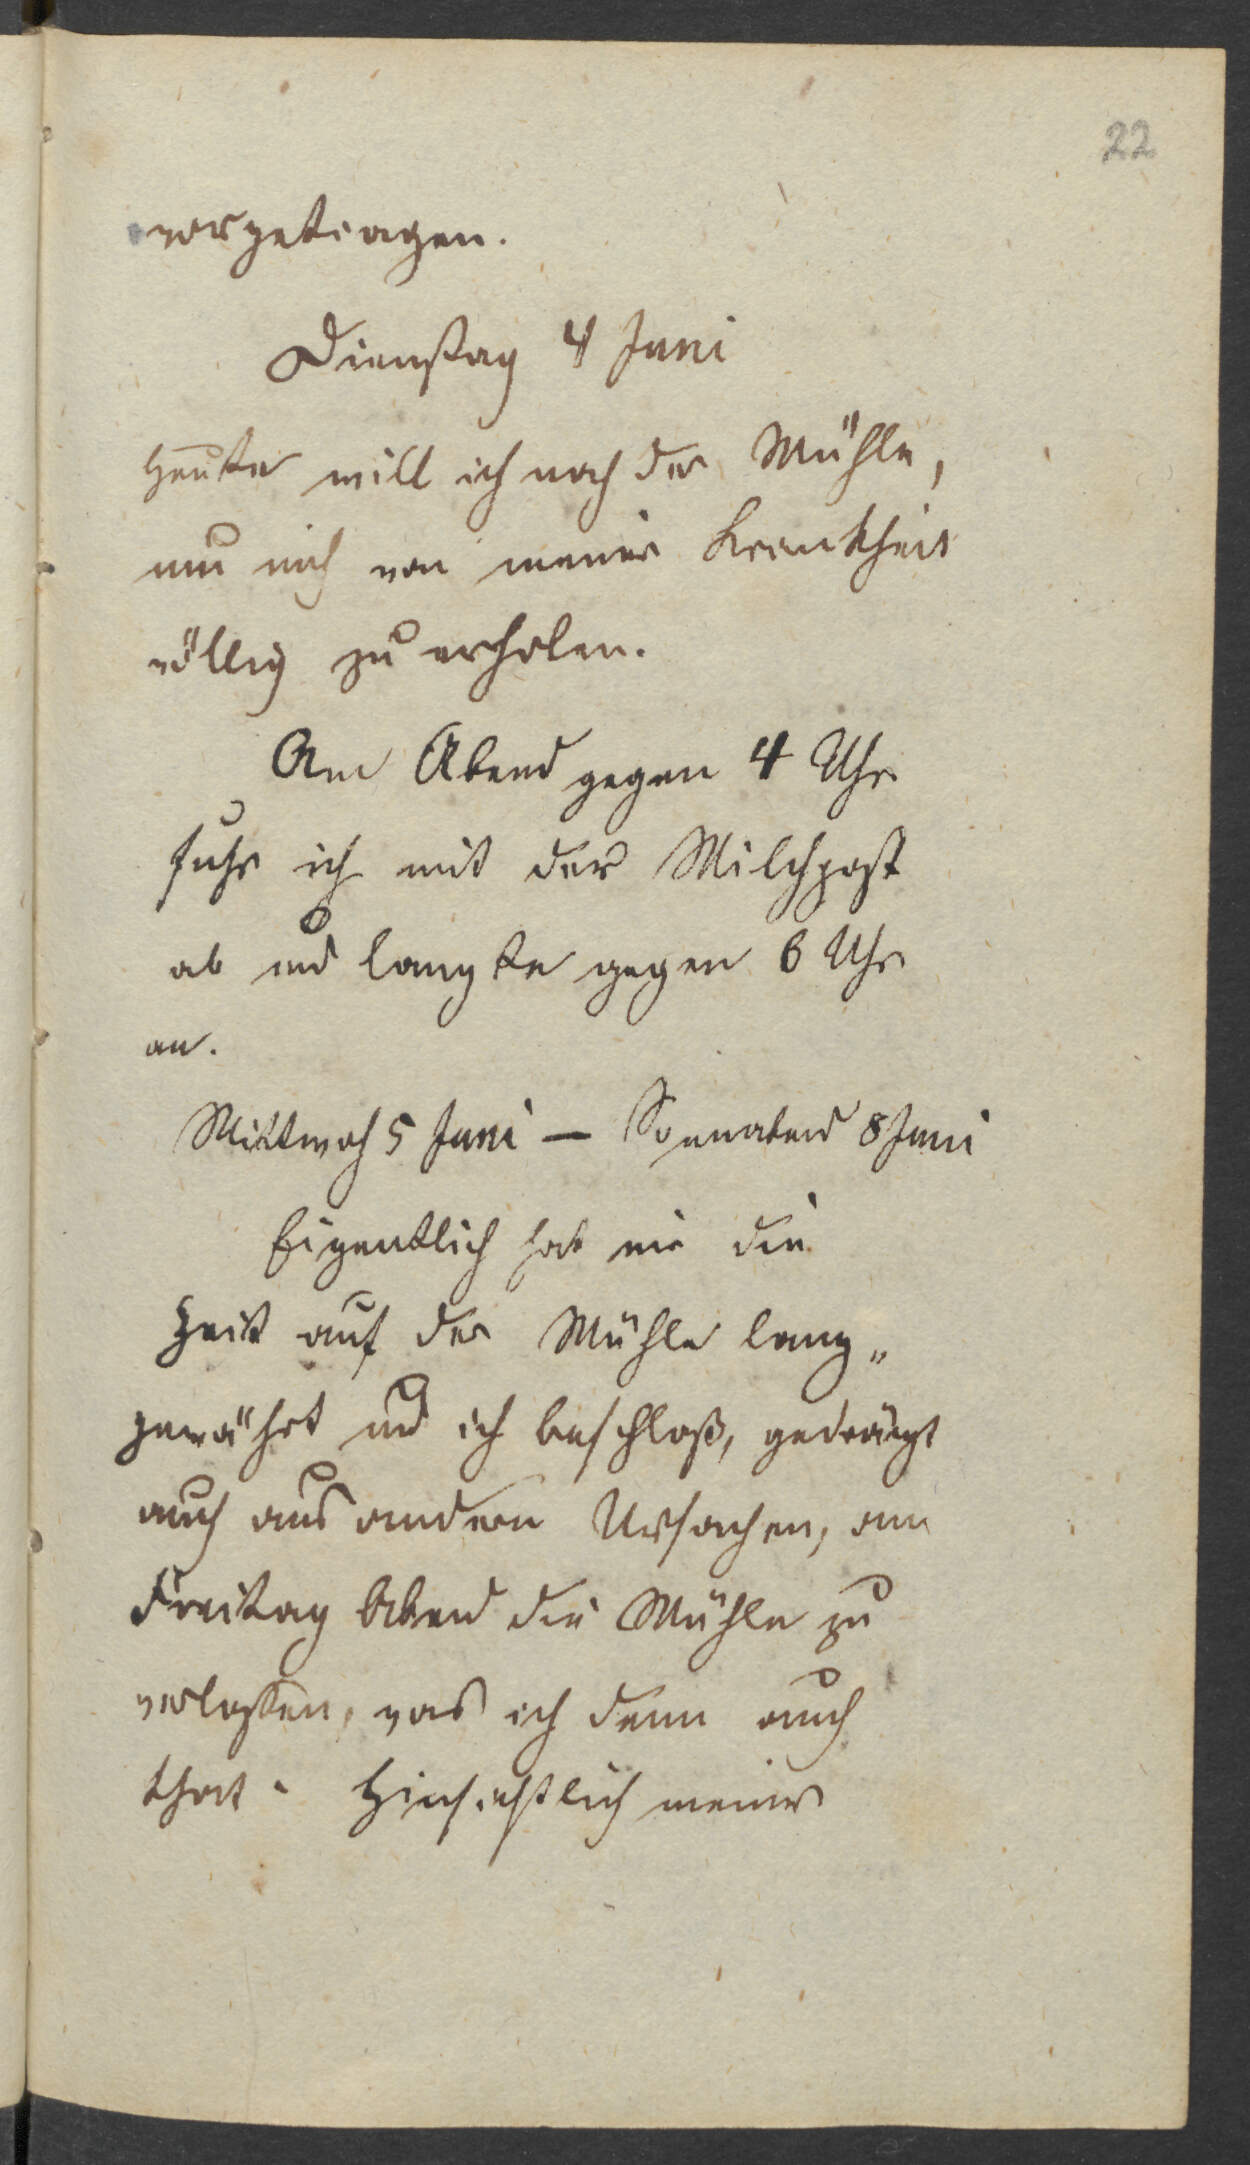 22
vorgetragen.
Dienstag 4 Juni
Heute will ich nach der Mühle,
um mich von meiner Krankheit
völlig zu erholen.
Am Abend gegen 4 Uhr
fuhr ich mit der Milchpost
ab und langte gegen 6 Uhr
an.
Mittwoch 5 Juni — Sonnabend 8 Juni
Eigentlich hat mir die
Zeit auf der Mühle lang„
gewährt und ich beschloß, gedrängt
auch aus andern Ursachen, am
Freitag Abend die Mühle zu
verlassen, was ich denn auch
that. Hinsichtlich meiner